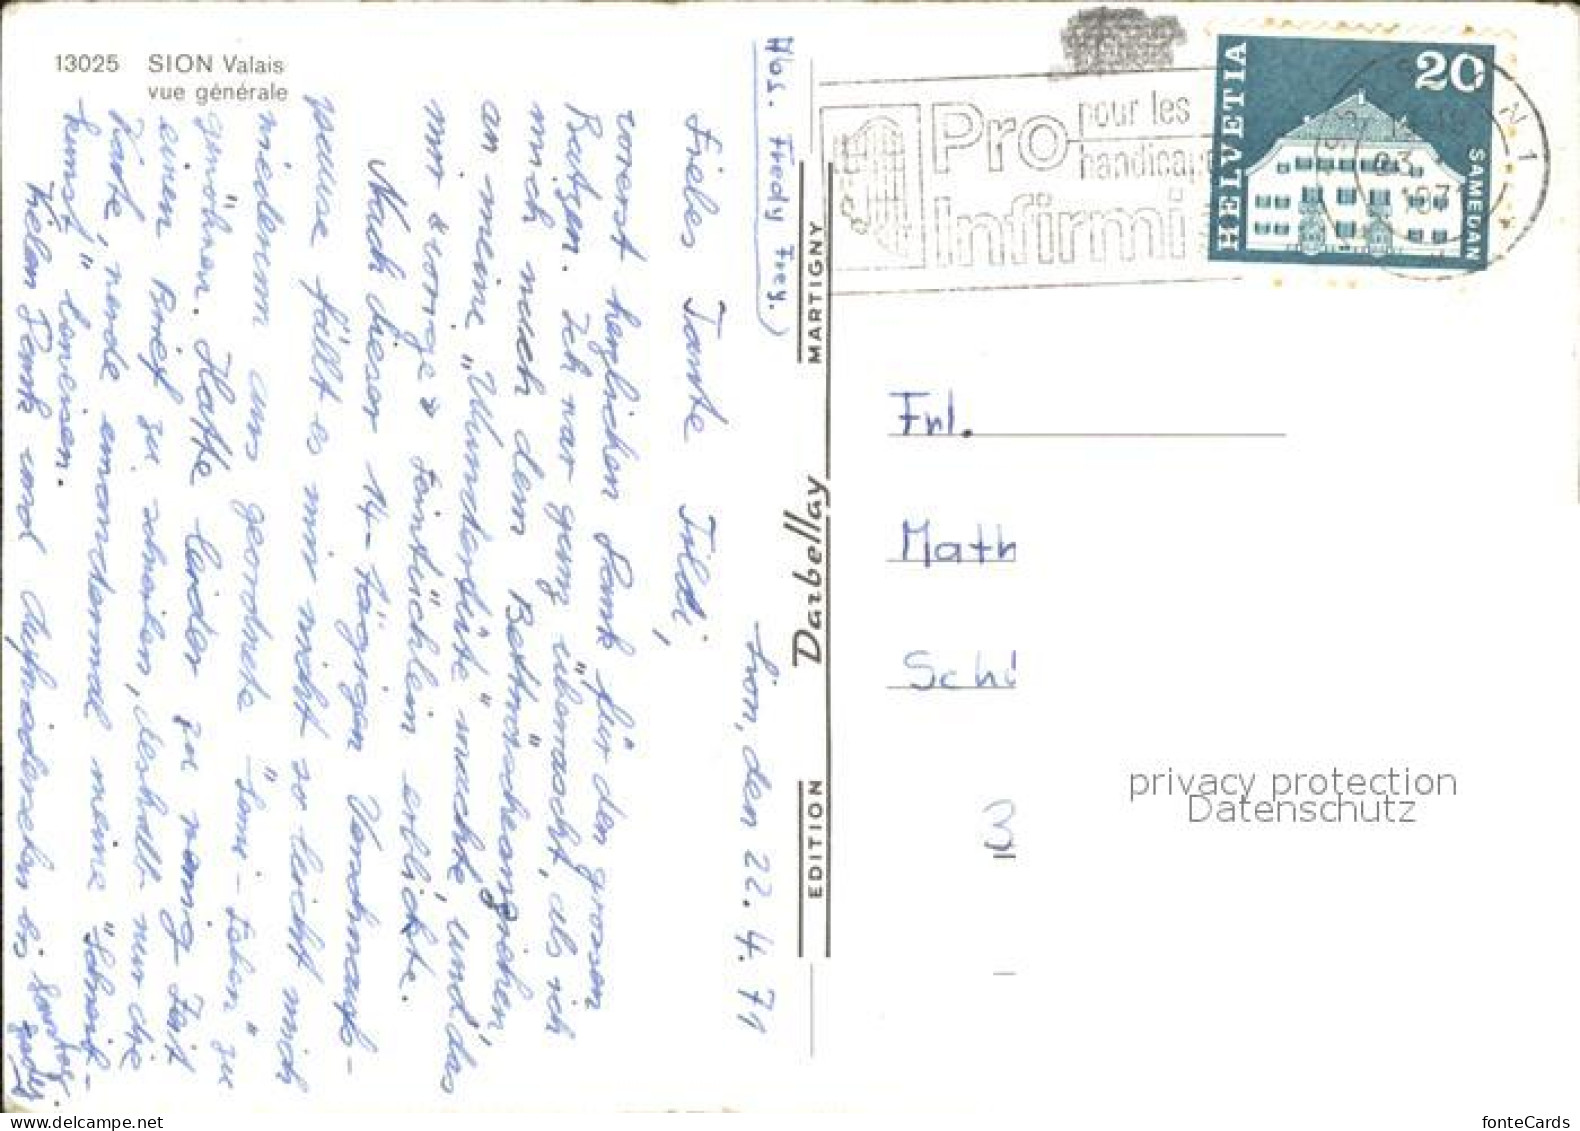 13025 SION Valais
vue générale
Abs. Fredy Frey.)
Sion, den 22. 4. 71
Liebes Tante Tildi,
vorerst herzlichen Dank für den grossen
Batzen. Ich war ganz überrascht, als ich
mich nach dem Bettnöscheangriehen
an meine "Wundertüte" machte, und das
mir "vorige" Feintüchlein erblickte.
Nach dieser 14-tägigen Verschnauf-
pause fällt es mir nicht so leicht mich
wiederum ans geordnete "Semi-Leben" zu
gewöhnen. Hatte leider zu wenig Zeit
einen Brief zu schreiben, deshalb nur die
Karte, werde ein andermal meine "Schreib-
kunst" beweisen.
Vielen Dank und Aufwiedersehen bis
Fredy
EDITION Darbellay MARTIGNY
Pro Infirmis
pour les
handicapés
HELVETIA
20
SAMEDAN
Frl.
Math
Sch
3
privacy protection
Datenschutz
fonteCards